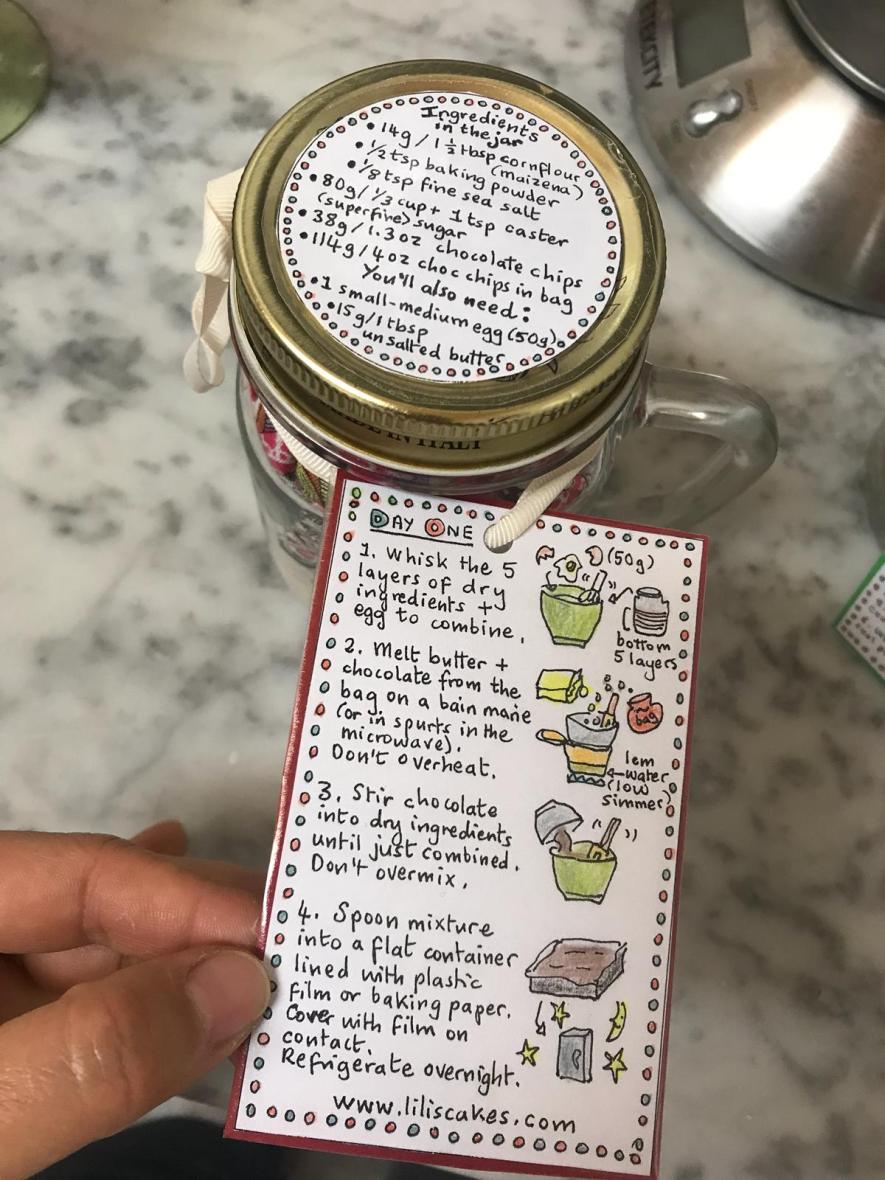 Ingredients
in the jar
• 14g / 1 1/2 tbsp cornflour
(maizena)
• 1/2 tsp baking powder
• 1/8 tsp fine sea salt
• 80g / 1/3 cup + 1 tsp caster
(superfine) sugar
• 38g / 1.3oz chocolate chips
• 114g / 4oz choc chips in bag
You'll also need:
• 1 small-medium egg (50g)
• 15g / 1 tbsp
unsalted butter
DAY ONE
1. Whisk the 5
layers of dry
ingredients +
egg to combine.
(50g)
bottom
5 layers
2. Melt butter +
chocolate from the
bag on a bain marie
(or in spurts in the
microwave).
Don't overheat.
bag
1cm
water
(low
simmer)
3. Stir chocolate
into dry ingredients
until just combined.
Don't overmix.
4. Spoon mixture
into a flat container
lined with plastic
film or baking paper.
Cover with film on
contact.
Refrigerate overnight.
www.liliscakes.com